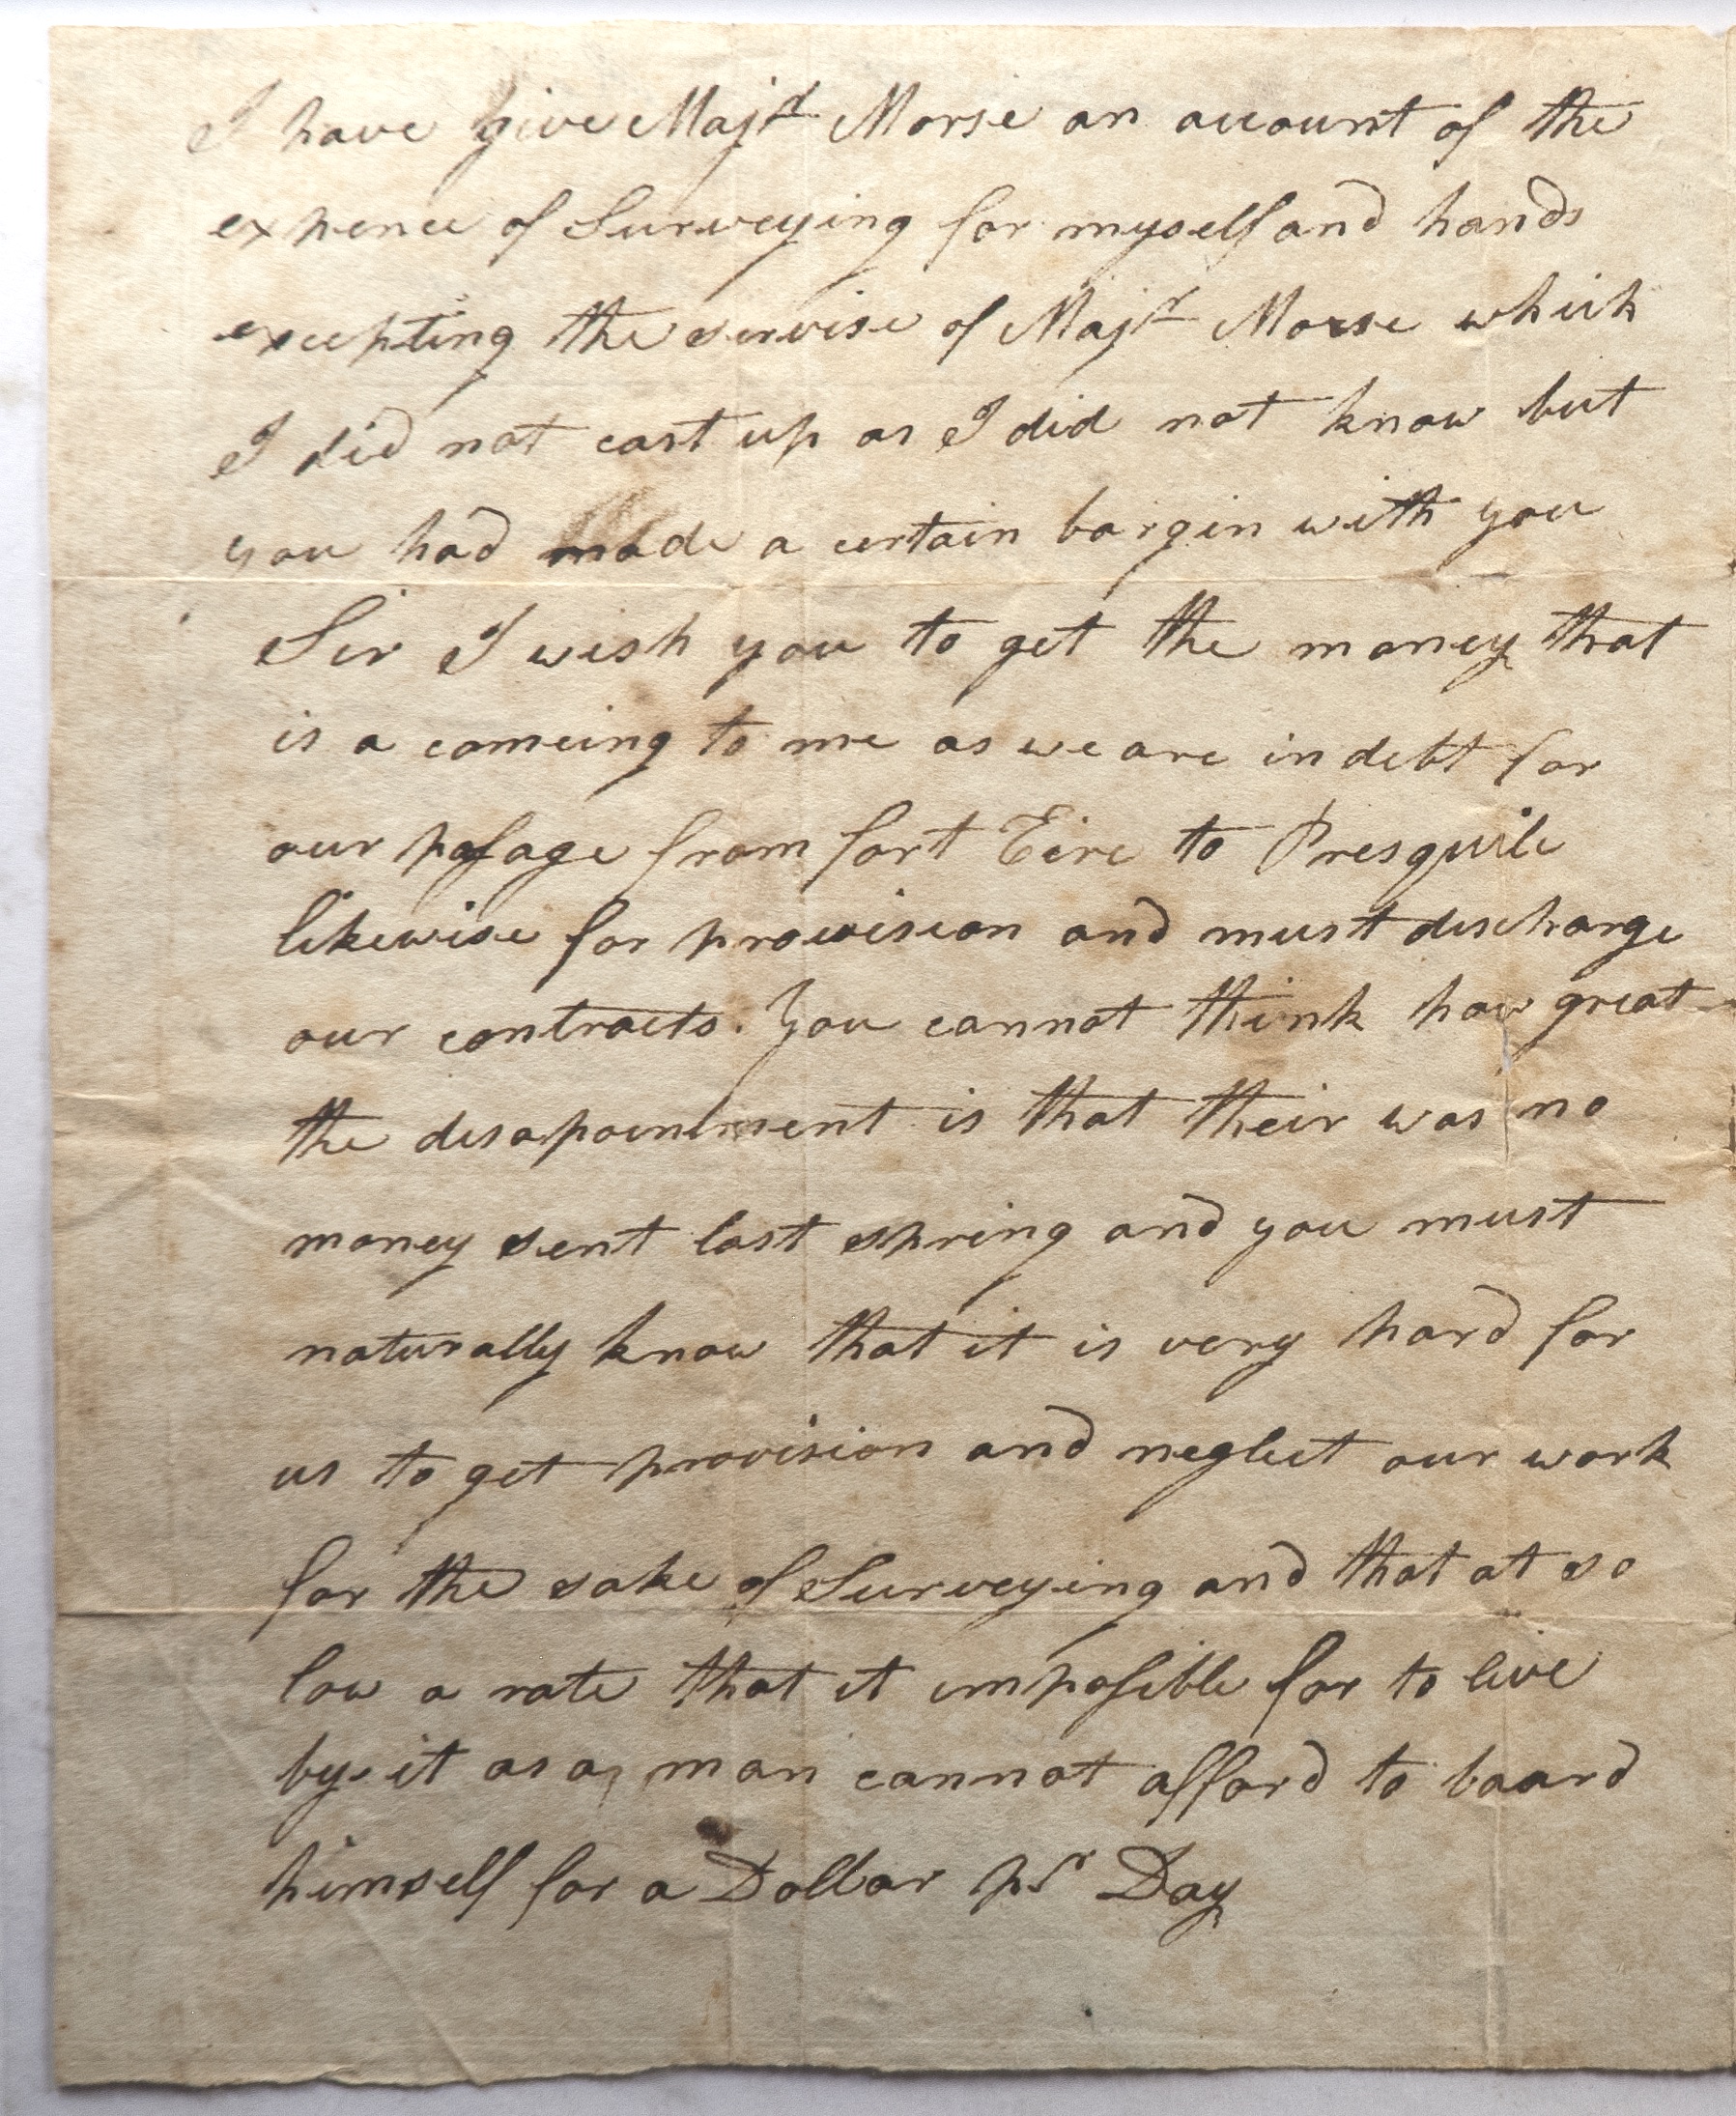 I have give Majr Morse an account of the
expence of Surveying for myself and hands
excepting the servise of Majr Morse which
I did not cast up as I did not know but
you had made a certain bargin with you
Sir I wish you to get the money that
is a comeing to me as we are in debt for
our pasage from fort Eire to Presquile
likewise for provision and must discharge
our contracts. You cannot think how great
the disapointment is that their was no
money sent last spring and you must
naturally know that it is very hard for
us to get provision and neglect our work
for the sake of Surveying and that at so
low a rate that it imposible for to live
by it as a man cannot afford to board
himself for a Dollar pr Day